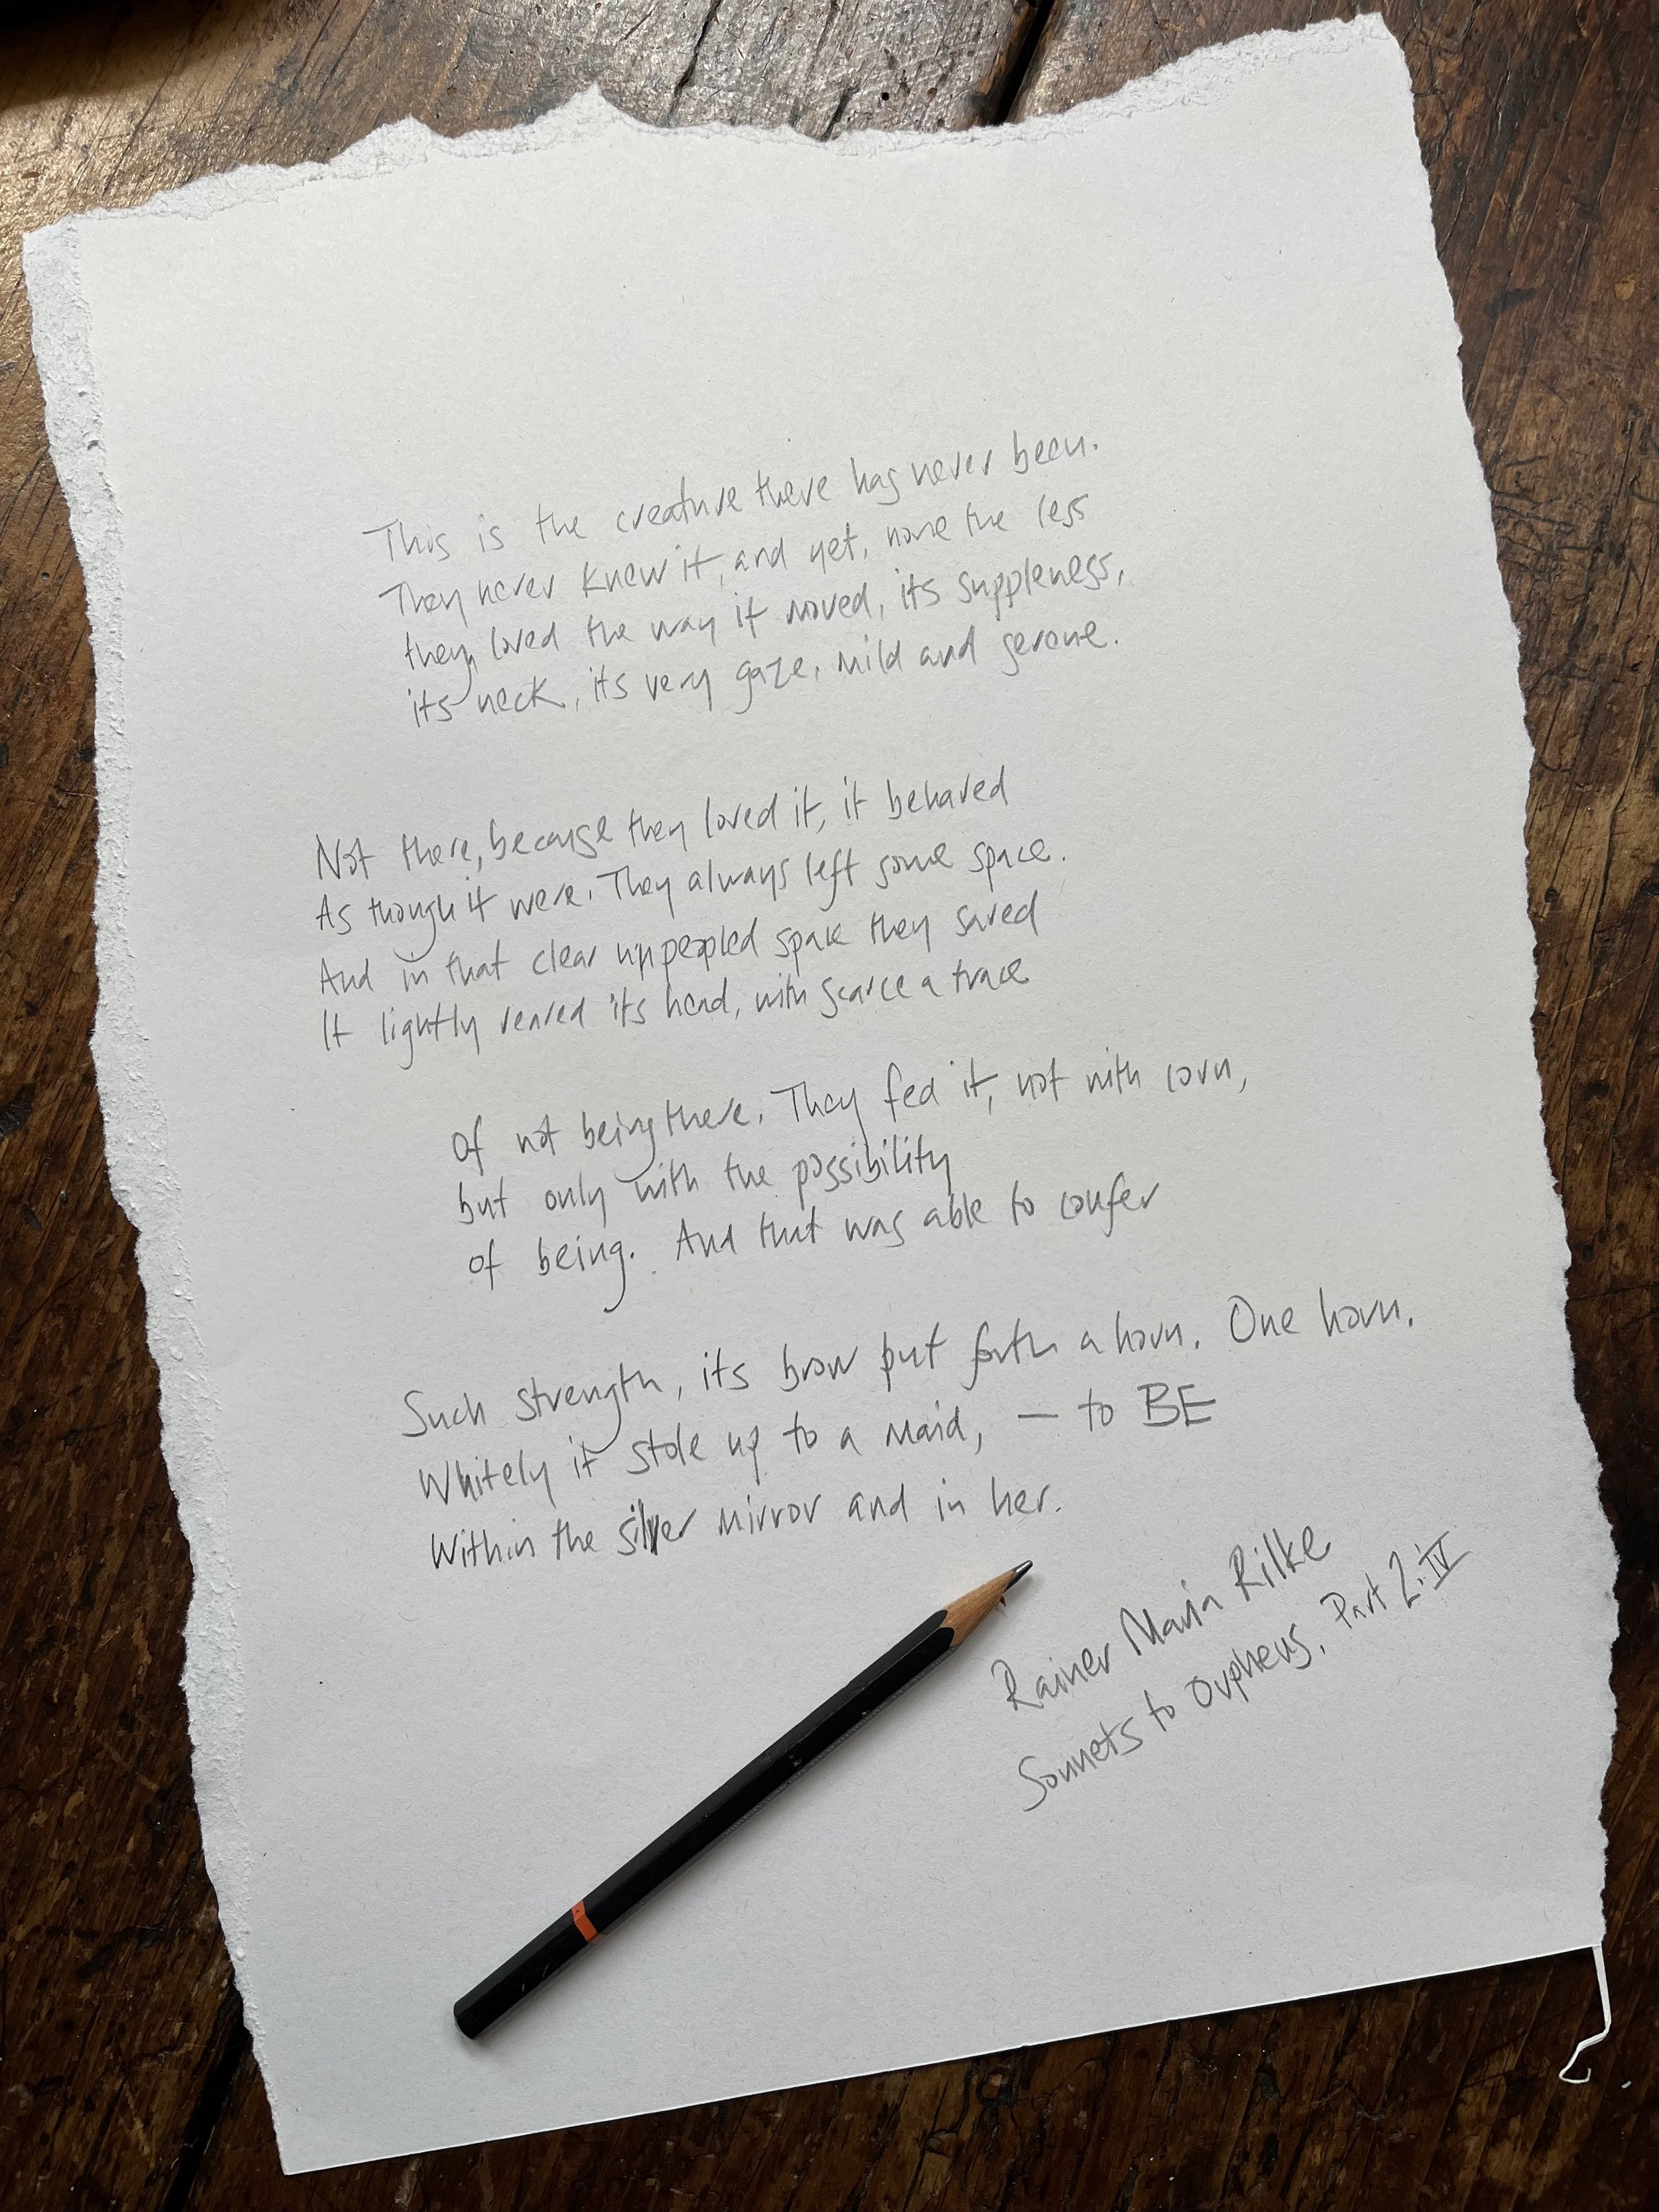 This is the creature there has never been.
They never knew it, and yet, none the less
they loved the way it moved, its suppleness,
its neck, its very gaze, mild and serene.
Not there, because they loved it, it behaved
As though it were. They always left some space.
And in that clear unpeopled space they saved
It lightly reared its head, with scarce a trace
Of not being there. They fed it, not with corn,
but only with the possibility
of being. And that was able to confer
Such strength, its brow put forth a horn. One horn.
Whitely it stole up to a Maid, — to BE
Within the silver mirror and in her.
Rainer Maria Rilke
Sonnets to Orpheus, Part 2:IV